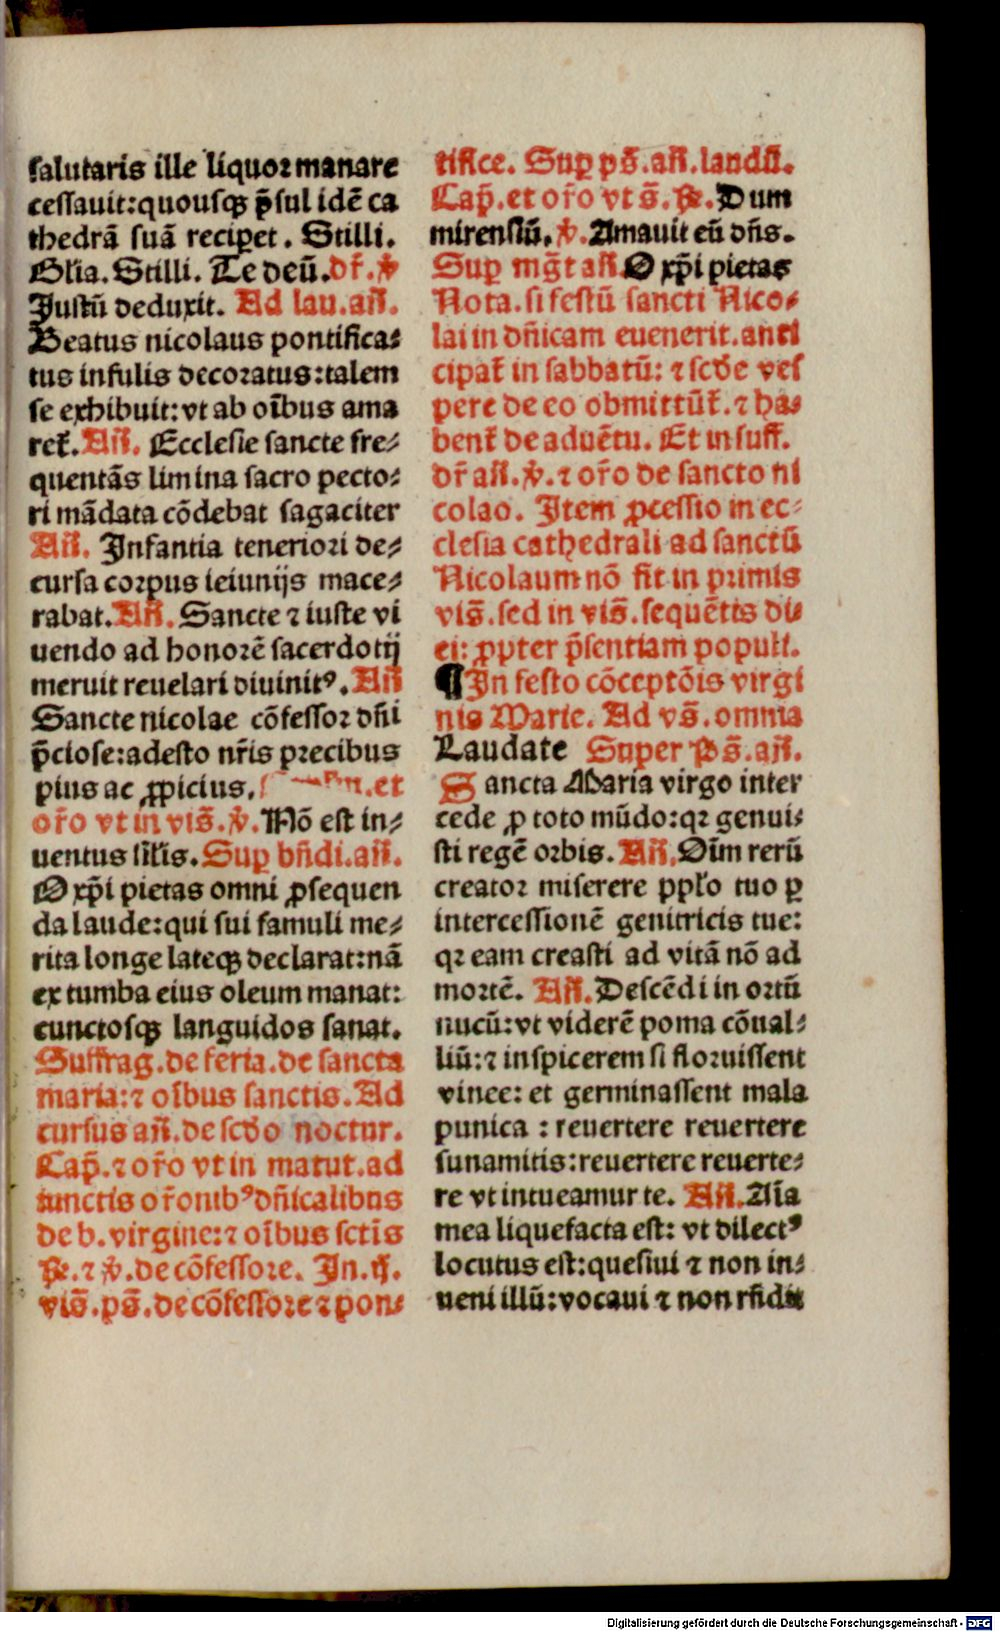 salutaris ille liquor manare
cessauit: quousqꝫ p̄sul idē ca
thedrā suā recipꝫet. Stilli.
Gl̄ia. Stilli. Te deū. dr̄. ℣
Justū deduxit. Ad lau. añ.
Beatus nicolaus pontifica⸗
tus infulis decoratus: talem
se exhibuit: vt ab oībus ama
ret᷑. Añ. Ecclesie sancte fre⸗
quentās limina sacro pecto⸗
ri mādata cōdebat sagaciter
Añ. Infantia teneriori de⸗
cursa corpus ieiunijs mace⸗
rabat. Añ. Sancte ⁊ iuste vi
uendo ad honorē sacerdotij
meruit reuelari diuinitꝰ. Añ
Sancte nicolae cōfessor dñi
p̄ciose: adesto nr̄is precibus
pius ac ꝓpicius. et
or̄o vt in vis̄. ℣. Nō est in⸗
uentus sil̄is. Suꝑ bñdi. añ.
O xp̄i pietas omni ꝓsequen
da laude: qui sui famuli me⸗
rita longe lateqꝫ declarat: nā
ex tumba eius oleum manat:
cunctosqꝫ languidos sanat.
Suffrag. de feria. de sancta
maria: ⁊ oībus sanctis. Ad
cursus añ. de scd̄o noctur.
Cap̄. ⁊ or̄o vt in matut. ad
iunctis or̄onibꝰ dñicalibus
de b. virgine: ⁊ oībus sctīs
℟. ⁊ ℣. de cōfessore. In. ij.
vis̄. ps̄. de cōfessore ⁊ pon⸗
tifice. Suꝑ ps̄. añ. laudīs.
Cap̄. et or̄o vt s̄. ℟. Dum
mirensiū. ℣. Amauit eū dñs.
Suꝑ mḡt añ. O xp̄i pietas
Nota. si festū sancti Nico⸗
lai in dñicam euenerit. anti
cipat᷑ in sabbatū: ⁊ scd̄e ves
pere de eo obmittūt᷑. ⁊ ha⸗
bent᷑ de aduētu. Et in suff.
dr̄ añ. ℣. ⁊ or̄o de sancto ni
colao. Item ꝓcessio in ec⸗
clesia cathedrali ad sanctū
Nicolaum nō fit in primis
vis̄. sed in vis̄. sequētis di⸗
ei: ꝓpter p̄sentiam populi.
¶ In festo cōceptōis virgi
nis Marie. Ad vs̄. omnia
Laudate Super Ps̄. añ.
Sancta Maria virgo inter
cede ꝓ toto mūdo: qꝛ genui⸗
sti regē orbis. Añ. Oīm rerū
creator miserere pplo tuo ꝑ
intercessionē genitricis tue:
qꝛ eam creasti ad vitā nō ad
mortē. Añ. Descēdi in ortū
nucū: vt viderē poma cōual⸗
liū: ⁊ inspicerem si floruissent
vinee: et germinassent mala
punica : reuertere reuertere
sunamitis: reuertere reuerte⸗
re vt intueamur te. Añ. Aīa
mea liquefacta est: vt dilectꝰ
locutus est: quesiui ⁊ non in⸗
ueni illū: vocaui ⁊ non rñdit
Digitalisierung gefördert durch die Deutsche Forschungsgemeinschaft - DFG